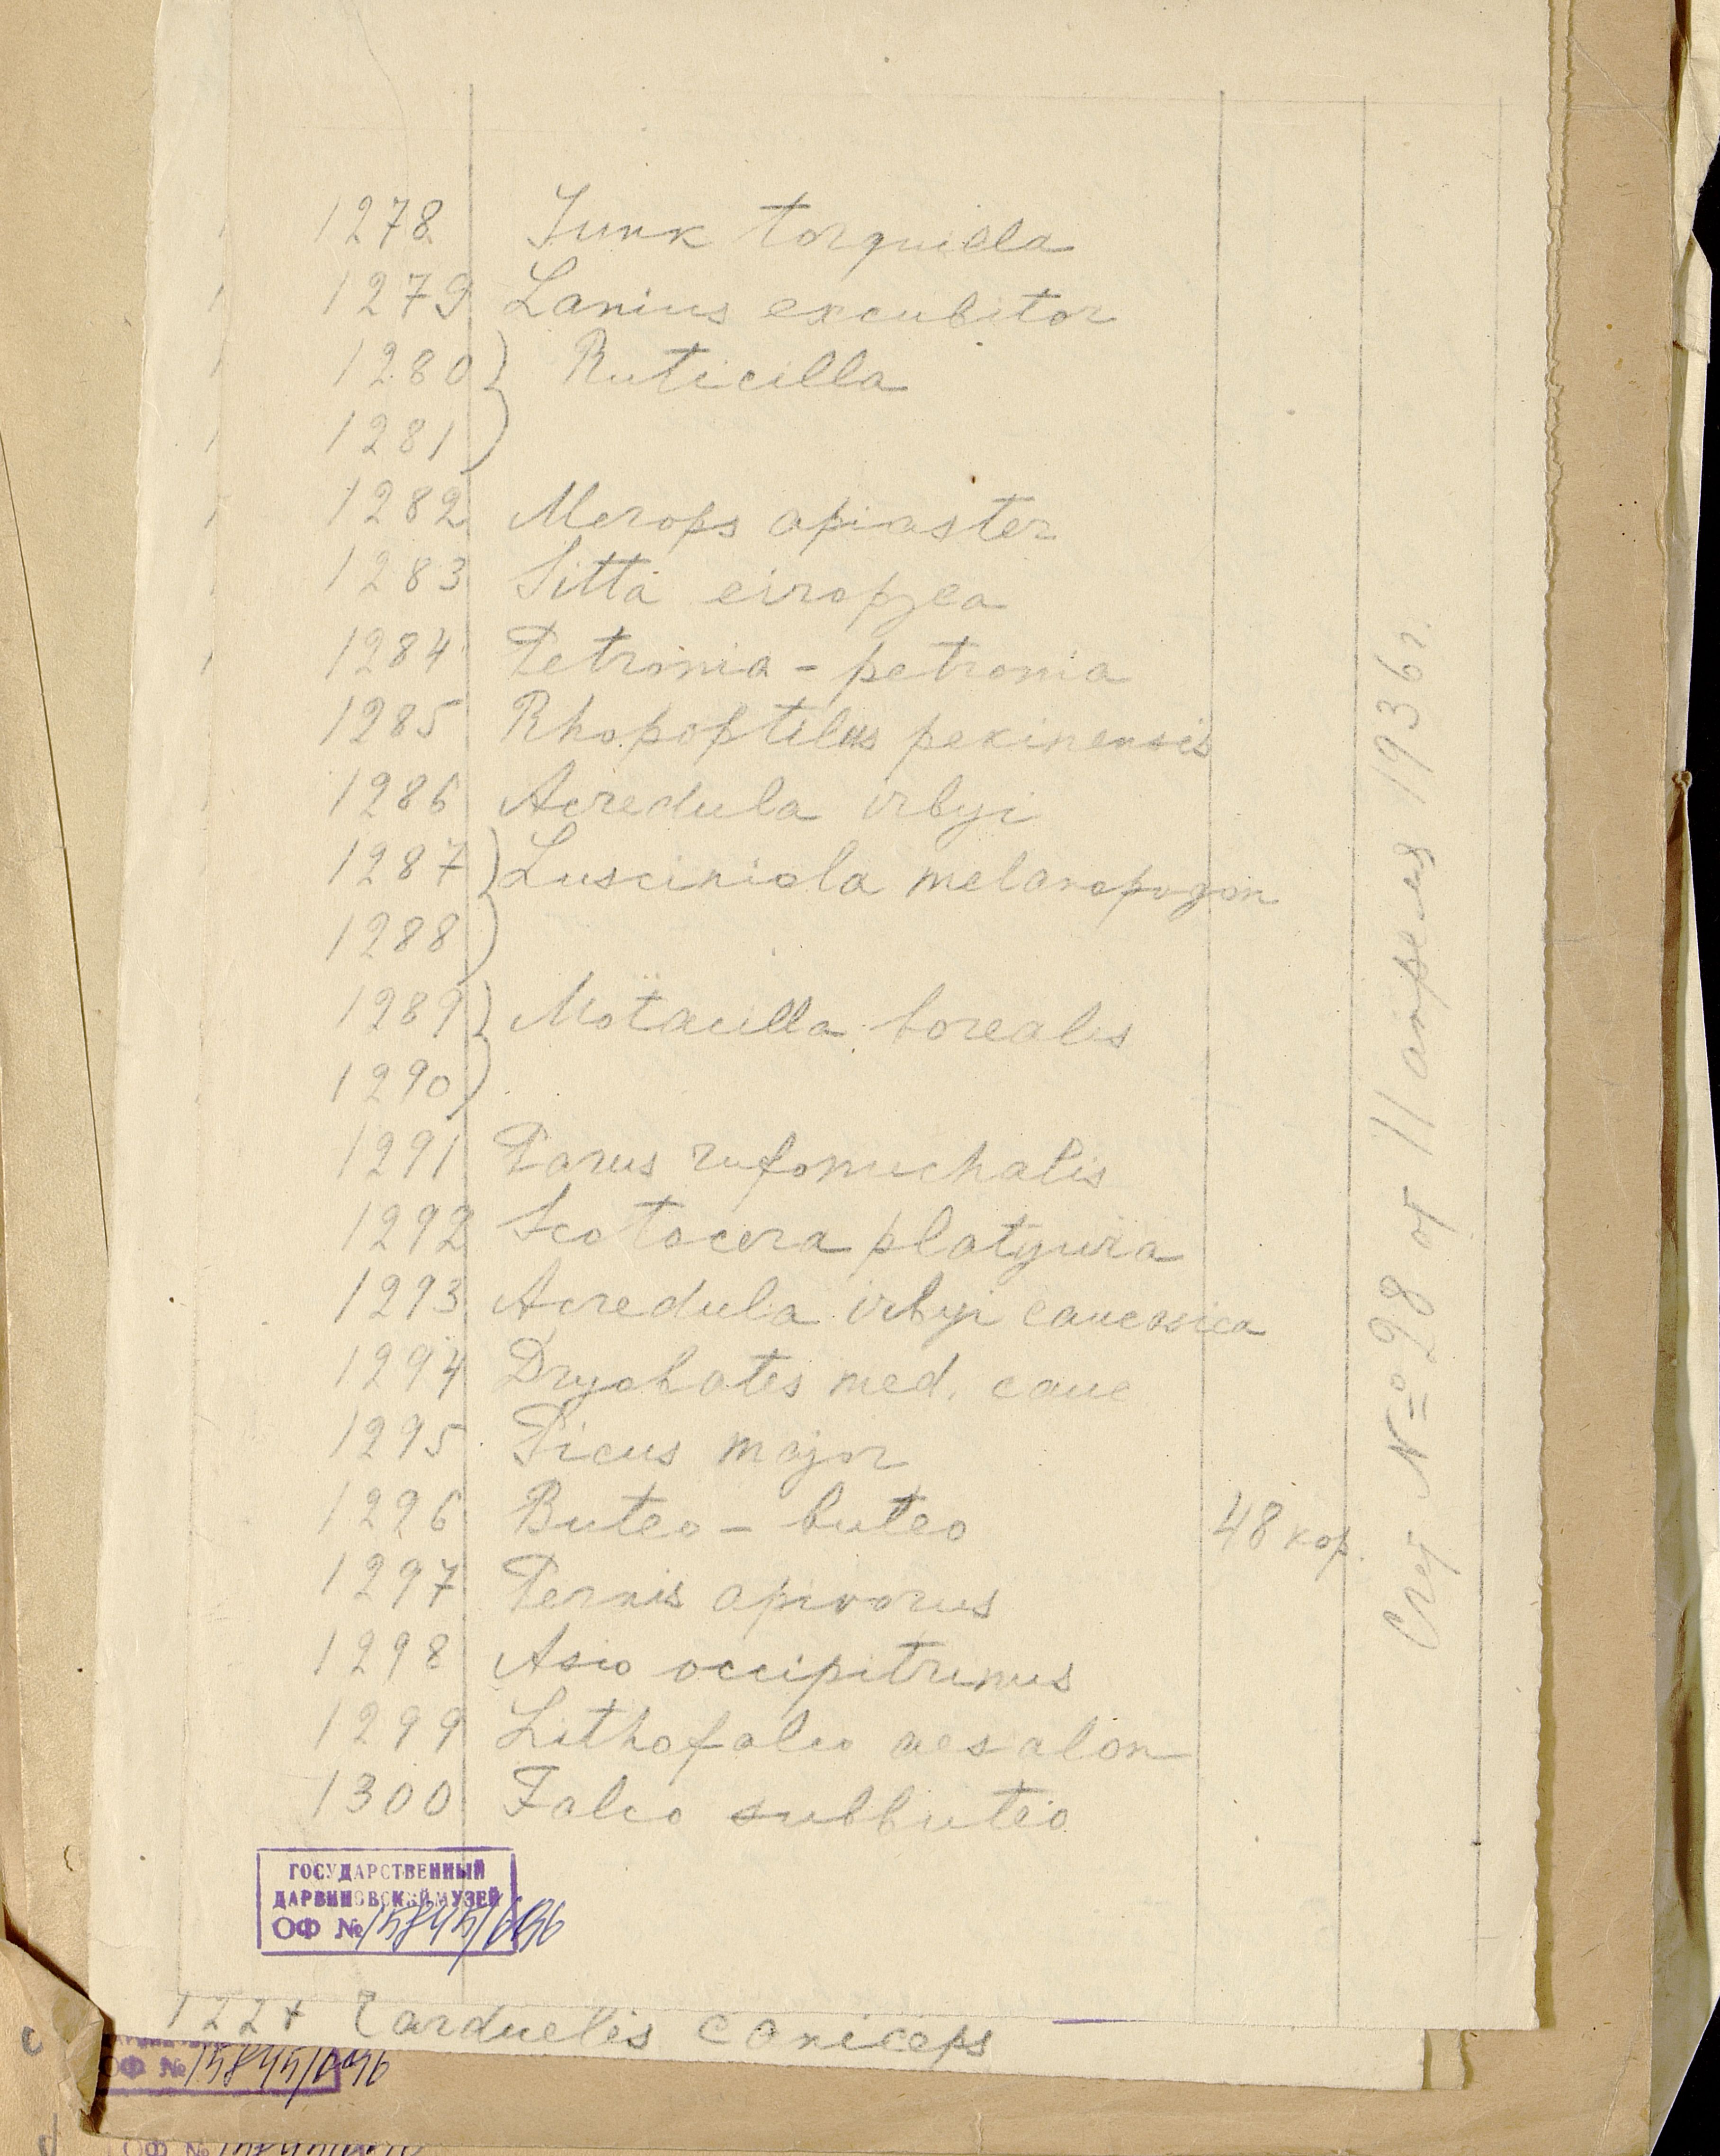 1278 Junx torquilla
1279 Lanius excubitor
1280 } Ruticilla
1281
1282 Merops apiaster
1283 Sitta eiropzea
1284 Petronia - petronia
1285 Rhopoptilus pekinensis
1286 Acredula irbyi
1287 } Lusciniola melanopogon
1288
1289 } Motacilla borealis
1290
1291 Parus rufonuchalis
1292 Scotocera platyura
1293 Acredula irbyi caucasica
1294 Dryobates med. cauc
1295 Picus major
1296 Buteo - buteo 48 кор.
1297 Pernis apivorus
1298 Asio accipitrinus
1299 Lithofalco aesalon
1300 Falco subbuteo
№ 98 от 11 апреля 1936 г.
ГОСУДАРСТВЕННЫЙ
ДАРВИНОВСКИЙ МУЗЕЙ
ОФ №
Carduelis caniceps
ОФ №
ОФ №